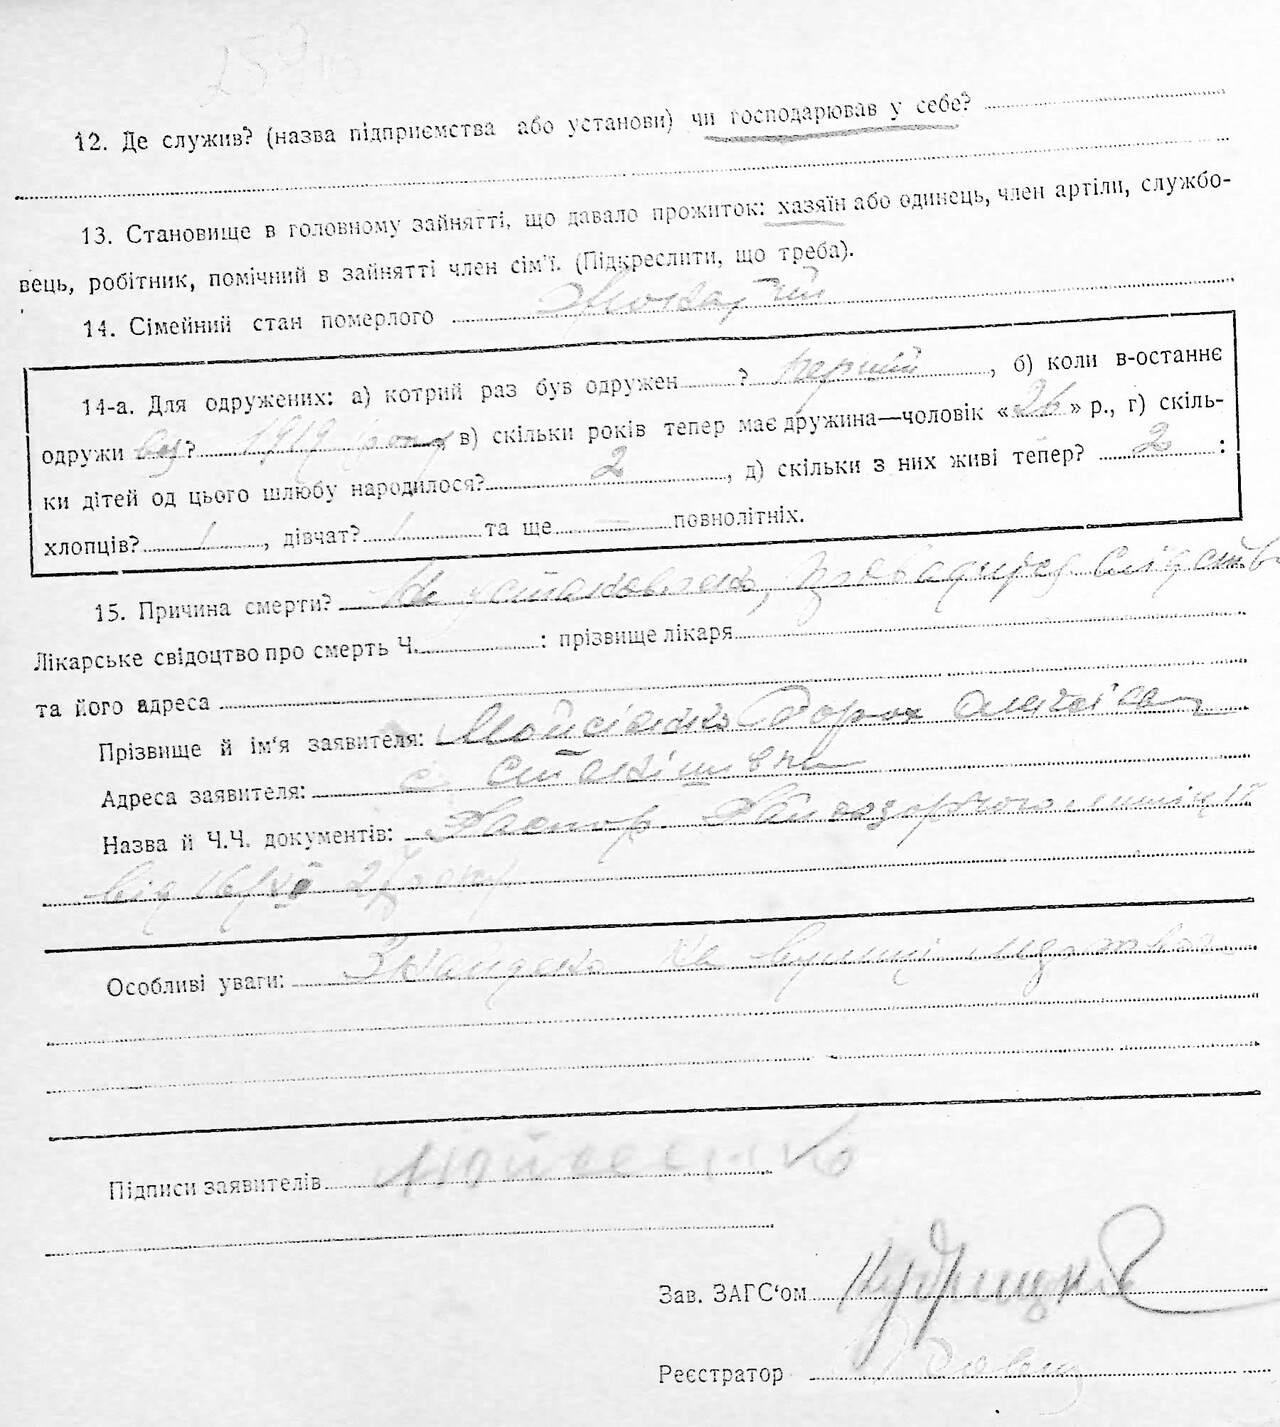 12. Де служив? (назва підприємства або установи) чи господарював у себе?
13. Становище в головному зайнятті, що давало прожиток: хазяїн або одинець, член артіли, службо-
вець, робітник, помічний в зайнятті член сім'ї. (Підкреслити, що треба).
14. Сімейний стан померлого
14-а. Для одружених: а) котрий раз був одружен ? перший, б) коли в-останнє
одружи вся? 1919 року в) скільки років тепер має дружина—чоловік «26» р., г) скіль-
ки дітей од цього шлюбу народилося? 2, д) скільки з них живі тепер? 2 :
хлопців? 1, дівчат? 1 та ще — повнолітніх.
15. Причина смерти? Не установлено, провадиться слідство
Лікарське свідоцтво про смерть Ч. : прізвище лікаря
та його адреса
Прізвище й ім'я заявителя: Мойсієнко
Адреса заявителя: с
Назва й Ч.Ч. документів:
від 16/XI 27 року
Особливі уваги: Знайдено на вулиці мертвого
Підписи заявителів Мойсеенко
Зав. ЗАГС'ом
Реєстратор